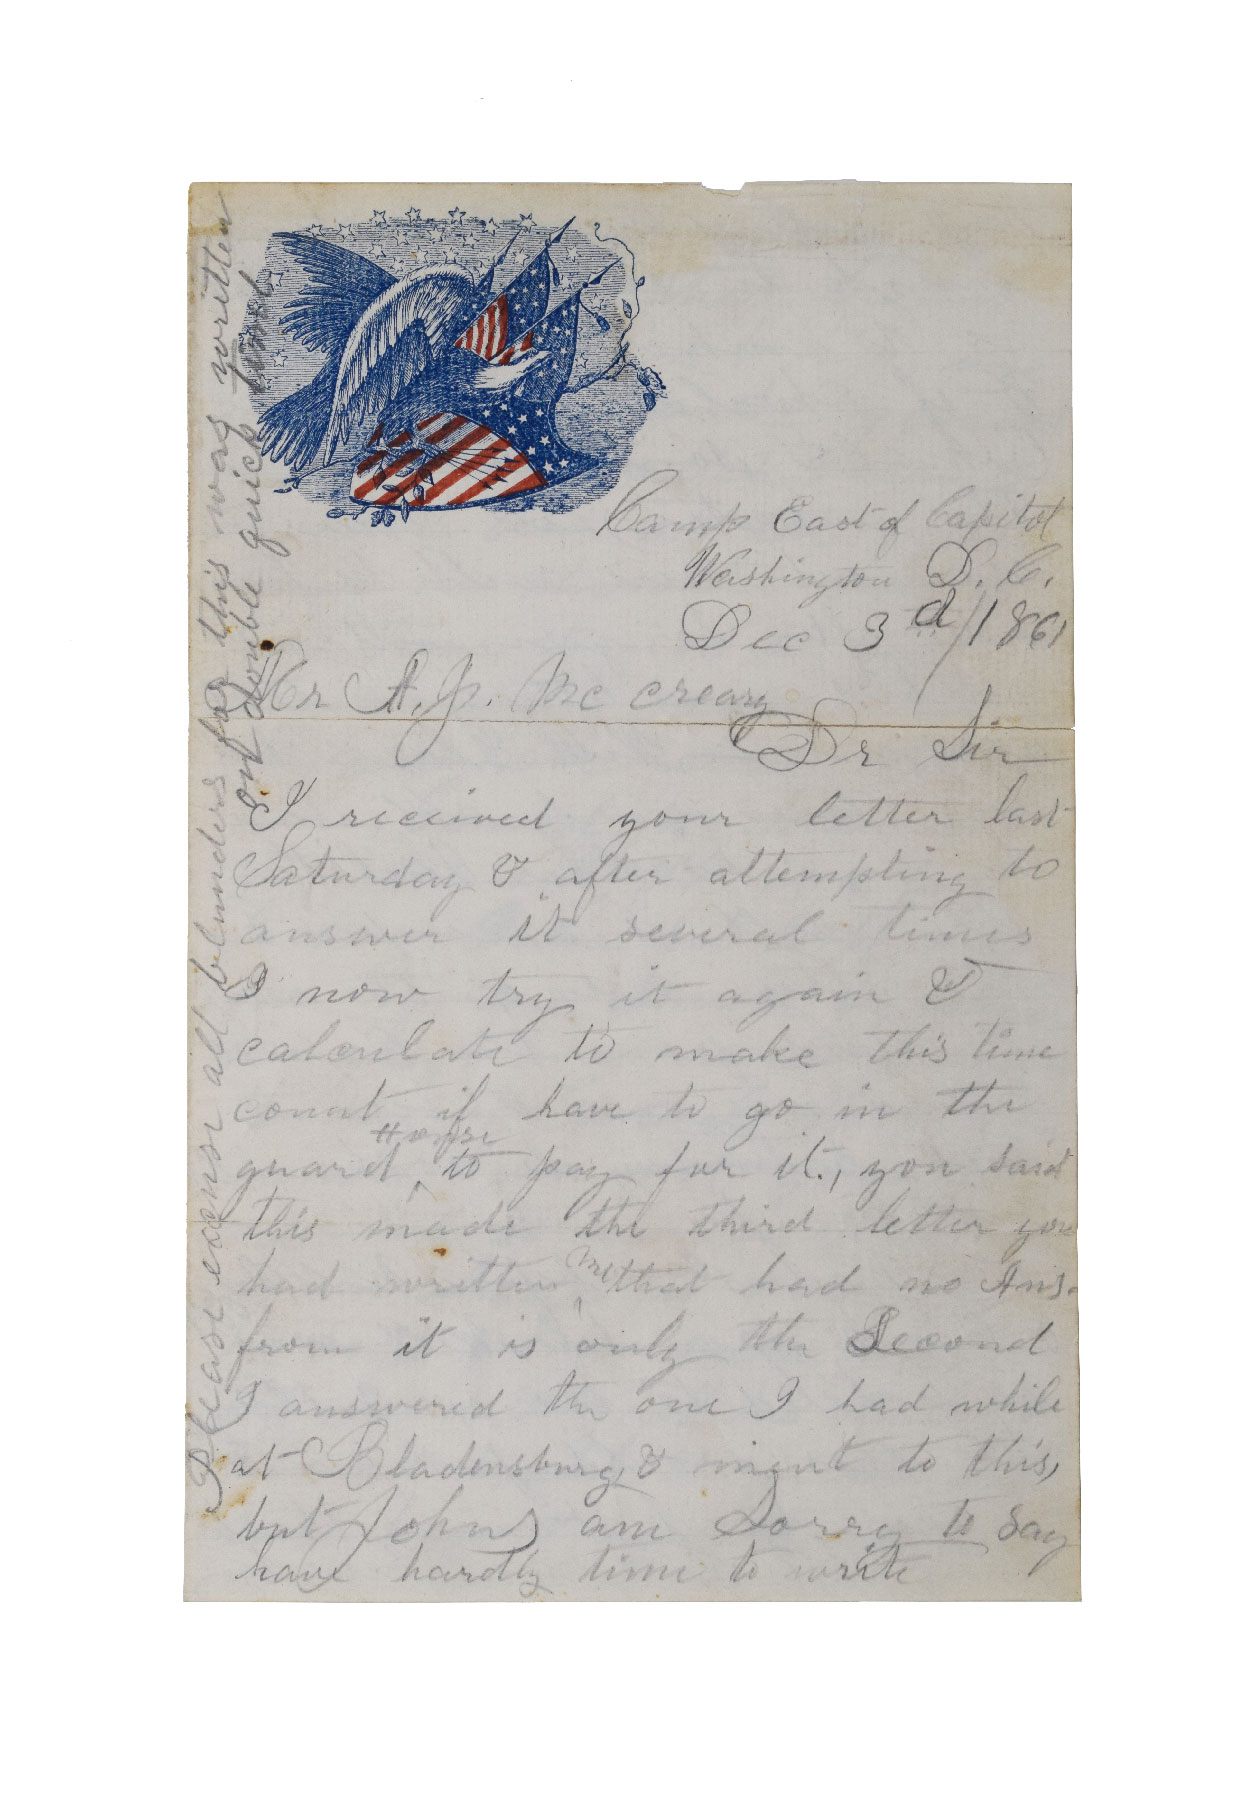 Camp East of Capitol
Washington D. C.
Dec 3d/1861
Mr A. J. Mc creary
Dr Sir
I received your letter last
Saturday & after attempting to
answer it several times
I now try it again &
calculate to make this time
count if have to go in the
guard House to pay for it., you said
this made the third letter you
had written me that had no Ans.
from it is only the Second
I answered the one I had while
at Bladensburg & ment to this,
but John am Sorry to Say
have hardly time to write
Please excuse all blunders for this was written
on double quick